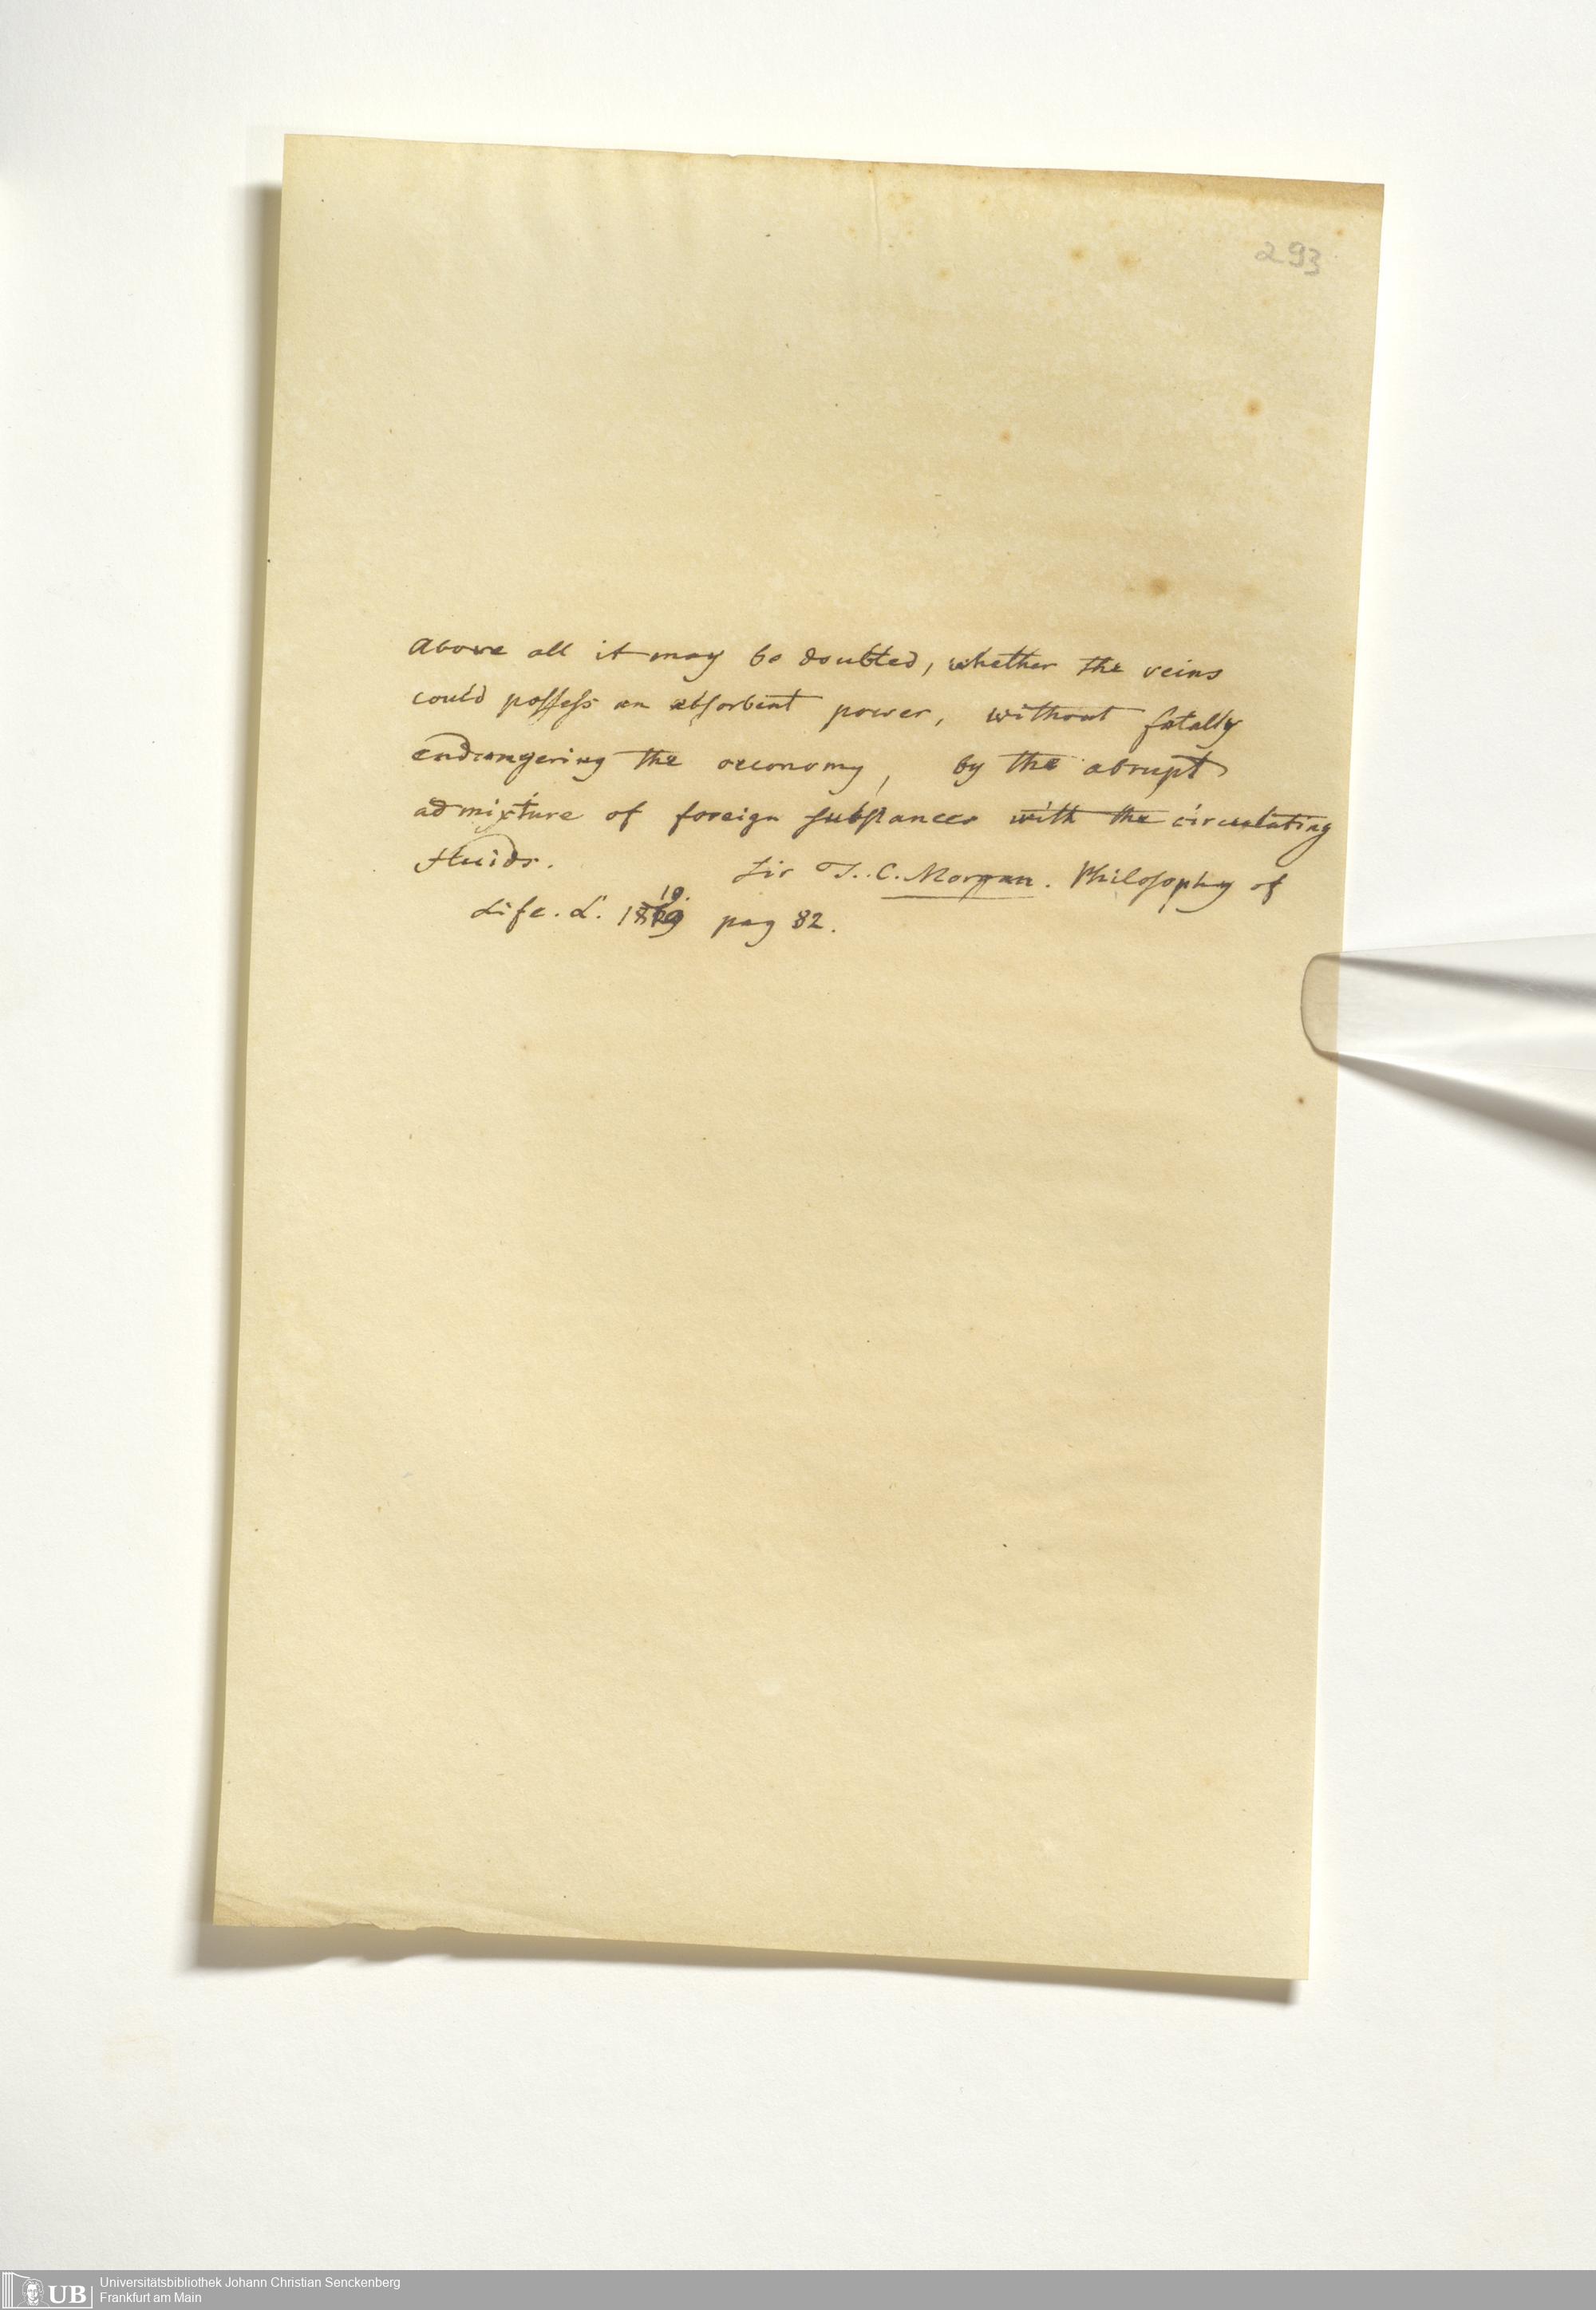 293
Above all it may be doubted, whether the veins
could possess an absorbent power, without fatally
endangering the oeconomy, by the abrupt
admixture of foreign substances with the circulating
fluids. Sir T. C. Morgan. Philosophy of
19.
Life. L. 1819 pag 82.
UB
Universitätsbibliothek Johann Christian Senckenberg
Frankfurt am Main